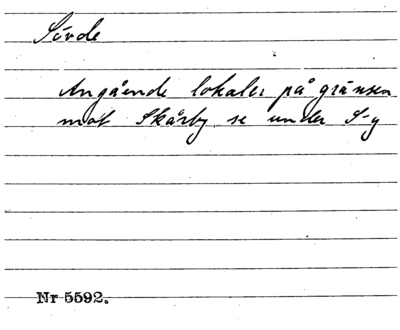 Sövde
Angående lokaler på gränsen
mot Skårby se under S-y
Nr 5592.